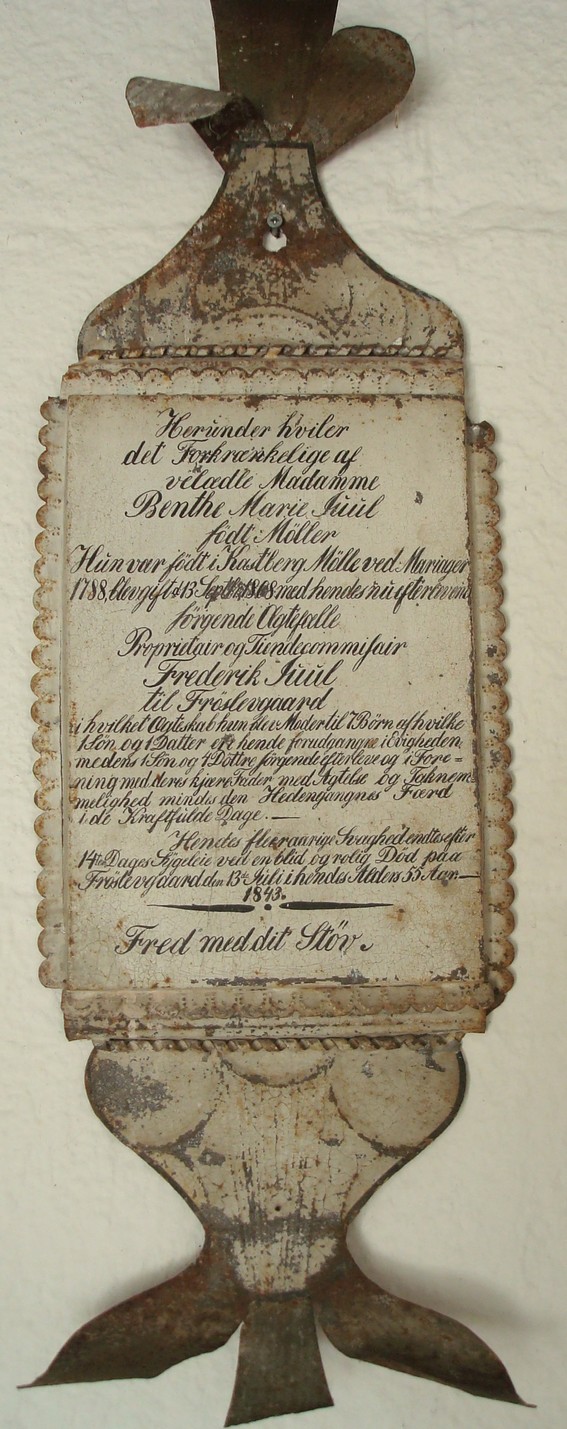 Herunder hviler
det Forkrænkelige af
velædle Madamme
Benthe Marie Juul
födt Möller
Hun var födt i Kastberg Mölle ved Mariager
1788, blev gift d 13 med hendes nu efterlevende
sörgende Ægtefælle
Proprietair og Tiendecommisair
Frederik Juul
til Fröslevgaard
i hvilket Ægteskab hun blev Moder til 7 Börn af hvilke
1 Sön og 1 Datter ere hende forudgangne i Evigheden
medens 1 Sön og 4 Döttre sörgende efterleve og i Fore=
ning med deres kjære Fader med Agtelse og Taknem
melighed mindes den Hedengangnes Færd
i de Kraftfulde Dage. —
Hendes fleeraarige Svaghed endtes efter
14ten Dages Sygeleie ved en blid og rolig Död paa
Fröslevgaard den 13de Juli i hendes Alders 55 Aar —
1843.
Fred med dit Stöv.